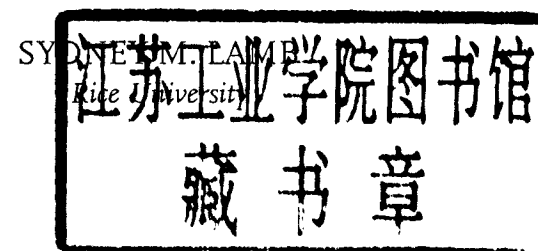 SYDNEY M. LAMB
Rice University
江苏工业学院图书馆
藏书章